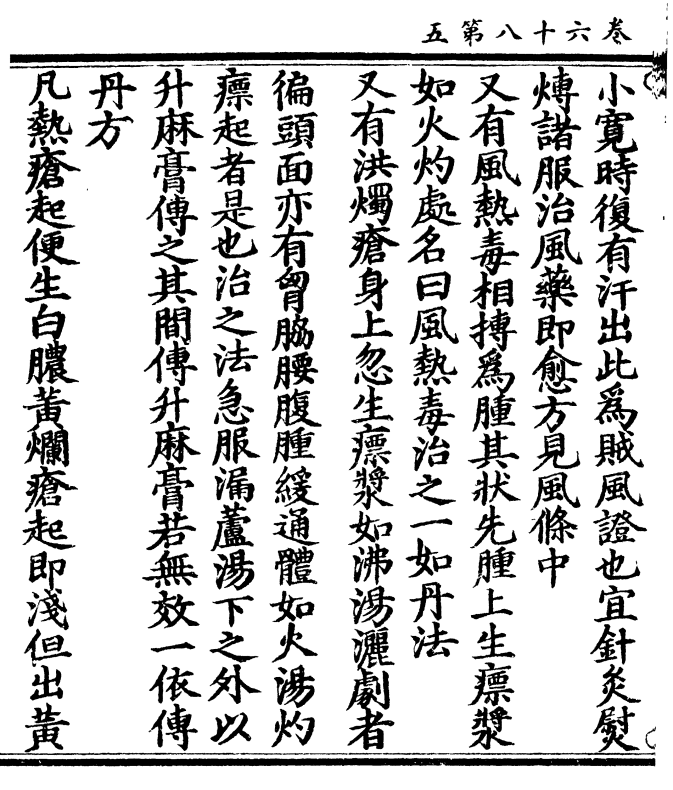 卷六十八第五
小寛時復有汗出此爲賊風證也宜針灸熨
煿諸服治風藥即愈方見風條中
又有風熱毒相摶爲腫其狀先腫上生瘭漿
如火灼處名曰風熱毒治之一如丹法
又有洪燭瘡身上忽生瘭漿如沸湯灑劇者
徧頭面亦有胷脇腰腹腫緩通體如火湯灼
瘭起者是也治之法急服漏蘆湯下之外以
升麻膏傅之其間傅升麻膏若無效一依傅
丹方
凡熱瘡起便生白膿黃爛瘡起即淺但出黃